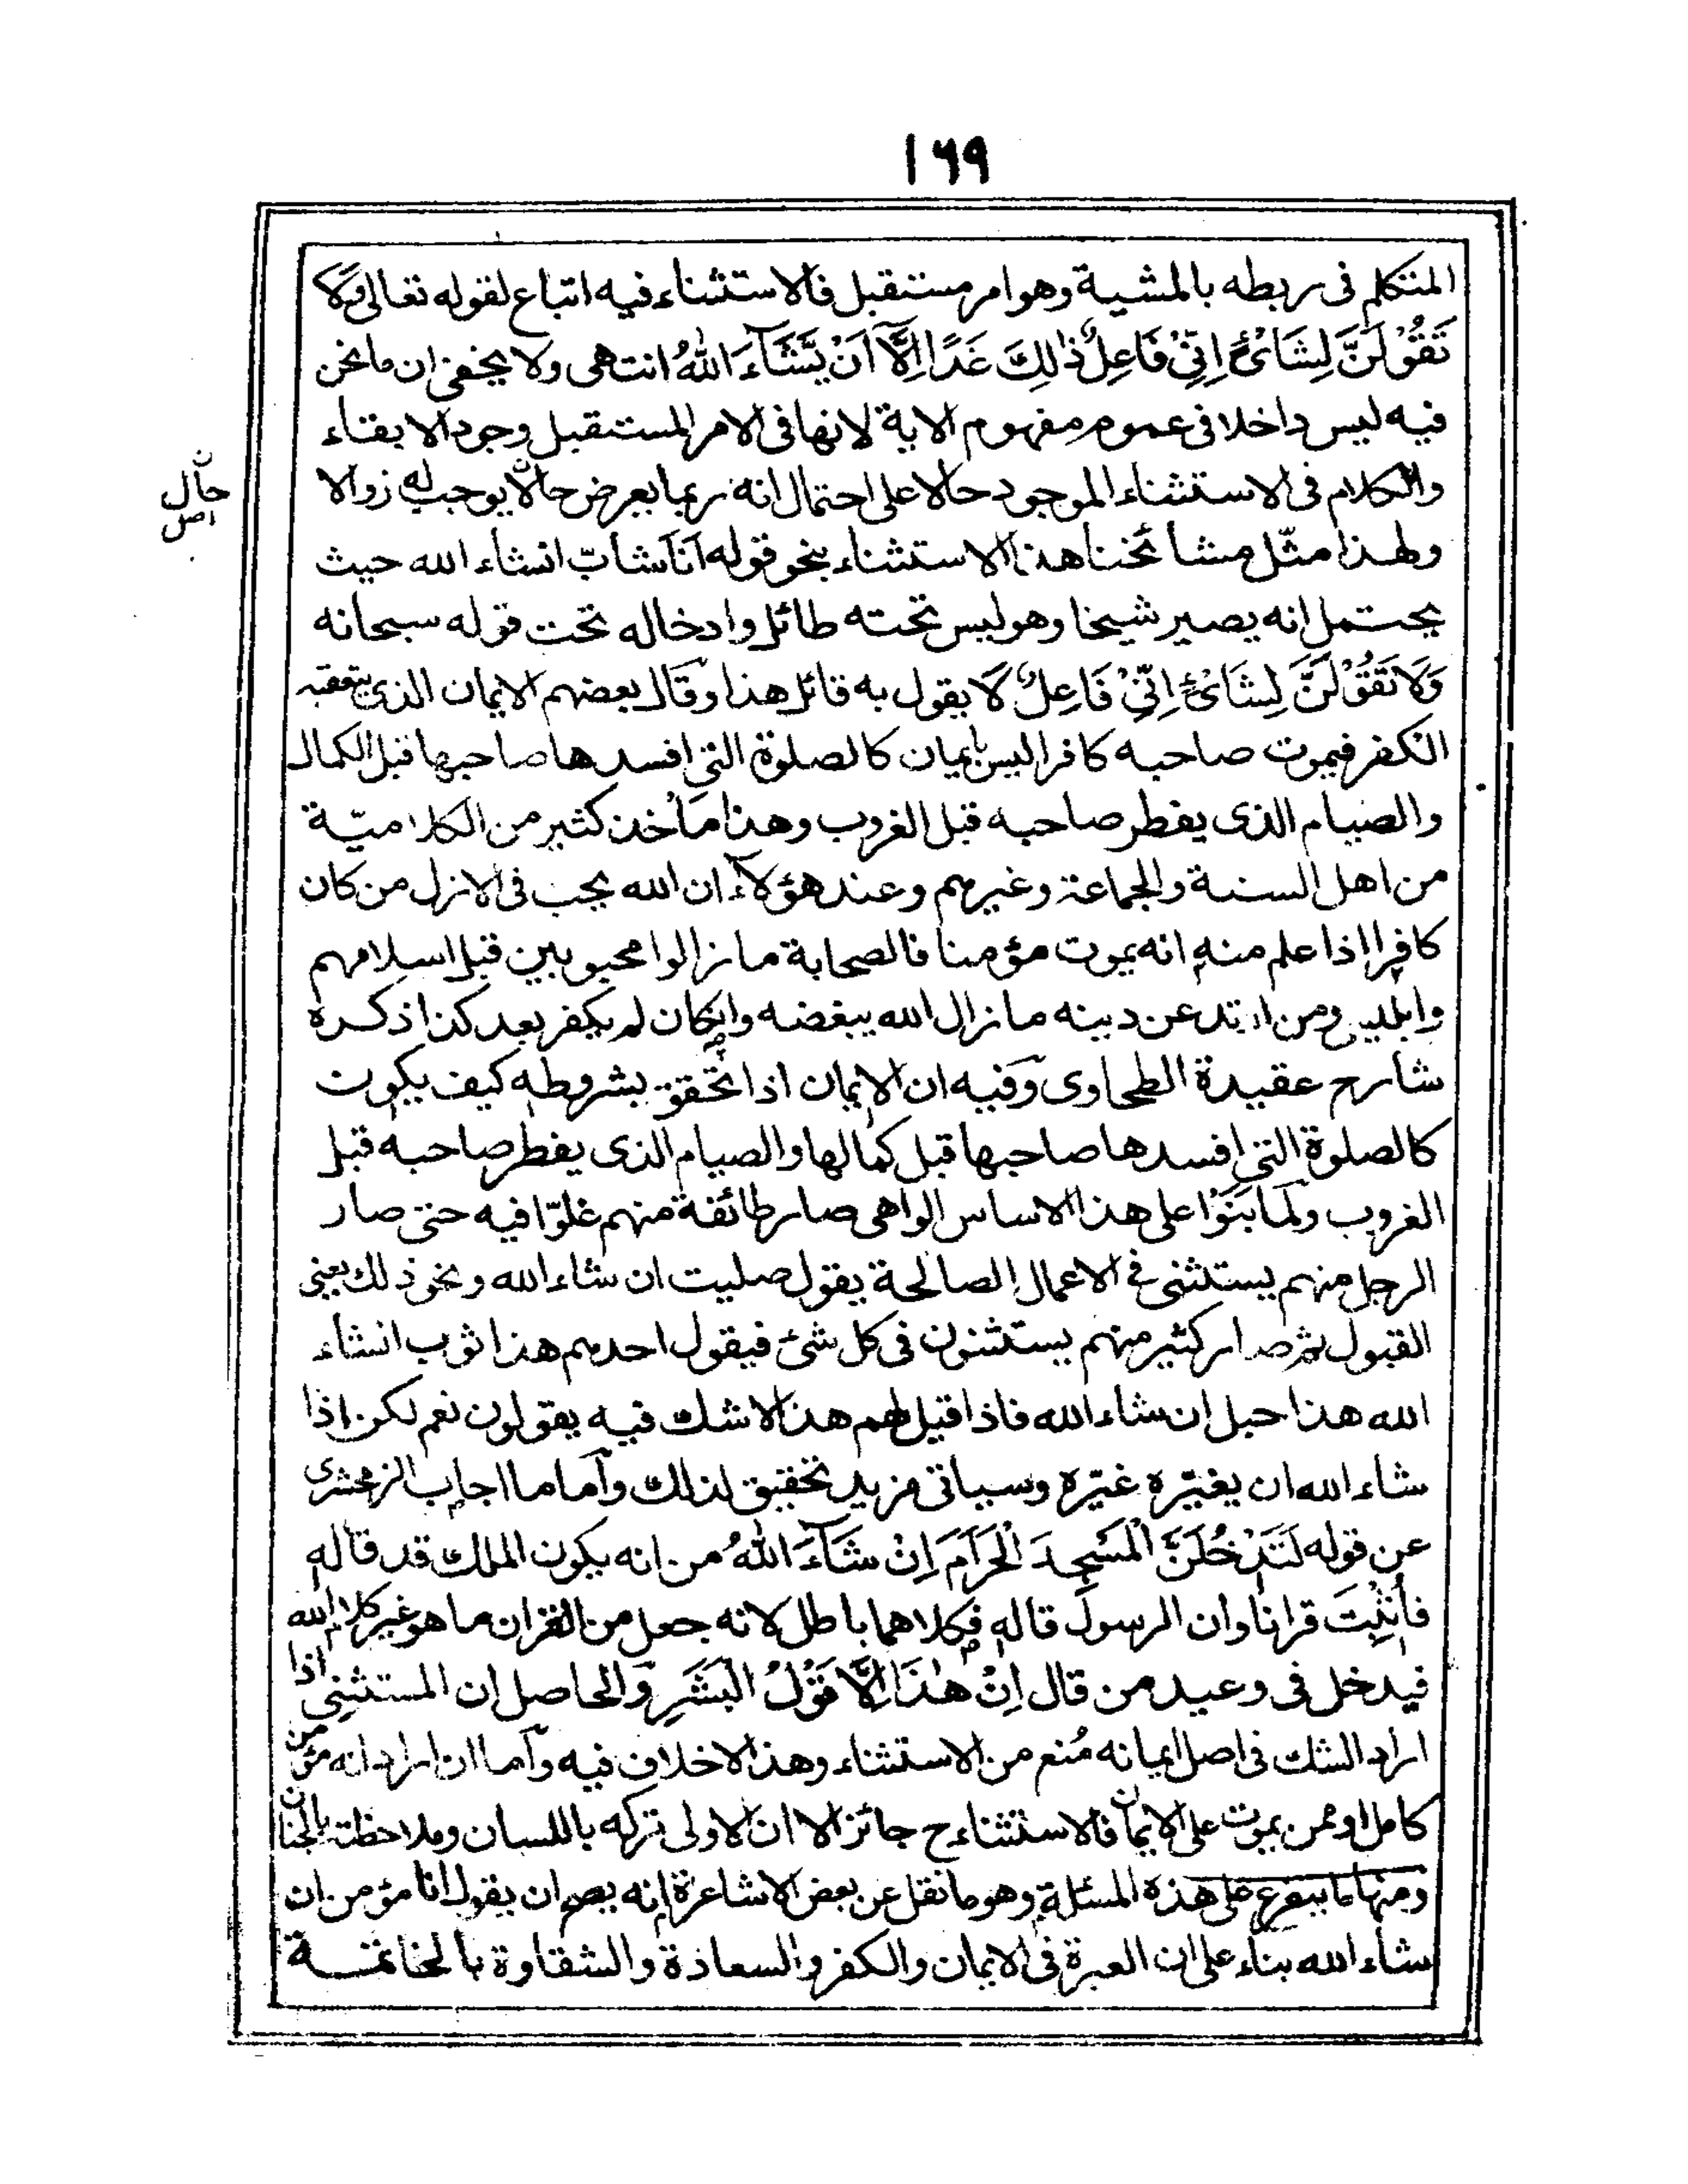 ١٦٩
المتكلم فى ربطه بالمشية وهو امر مستقبل فالاستثناء فيه اتباع لقوله تعالى وَلَا
تَقُوْلَنَّ لِشَائْءٍ اِنِّىْ فَاعِلٌ ذٰلِكَ غَدًا اِلَّآ اَنْ يَّشَآءَ اللهُ انتهى ولا يخفى ان ما نحن
فيه ليس داخلا فى عموم مفهوم الاية لانها فى الامر المستقبل وجودا لا بقاء
والكلام فى الاستثناء الموجود حالا على احتمال انه ربما يعرض حالا يوجب له زوالا
حال
ن
اصل
ولهذا مثّل مشائخنا هذا الاستثناء بنحو قوله اَنَا شابّ انشاء الله حيث
يحتمل انه يصير شيخا وهو ليس تحته طائل وادخاله تحت قوله سبحانه
وَلَا تَقُوْلَنَّ لِشَائْءٍ اِنِّىْ فَاعِلٌ لَا يقول به قائل هذا وقال بعضهم الايمان الذى يتعقبه
الكفر فيموت صاحبه كافرا ليس بايمان كالصلوة التى افسدها صاحبها قبل الكمال
والصيام الذى يفطر صاحبه قبل الغروب وهذا مَاْخذ كثير من الكلاميّة
من اهل السنة والجماعة وغيرهم وعند هؤلآء ان الله يحب فى الازل من كان
كافرا اذا علم منه انه يموت مؤمنا فالصحابة ما زالوا محبوبين قبل اسلامهم
وابليس ومن ارتد عن دينه ما زال الله يبغضه وانكان لم يكفر بعد كذا ذكره
شارح عقيدة الطحاوى وفيه ان الايمان اذا تحقق بشروطه كيف يكون
كالصلوة التى افسدها صاحبها قبل كمالها والصيام الذى يفطر صاحبه قبل
الغروب ولما بَنَوْا على هذا الاساس الواهى صار طائفة منهم غلوّا فيه حتى صار
الرجل منهم يستثنى فى الاعمال الصالحة يقول صليت ان شاء الله ونحو ذلك يعنى
القبول ثم صار كثير منهم يستثنون فى كل شئ فيقول احدهم هذا ثوب انشاء
الله هذا حبل ان شاء الله فاذا قيل لهم هذا لا شك فيه يقولون نعم لكن اذا
شاء الله ان يغيّره غيّره وسياتى مزيد تحقيق لذلك وآما ما اجاب الزمخشرى
عن قوله لَتَدْخُلَنَّ الْمَسْجِدَ الْحَرَامَ اِنْ شَآءَ اللهُ من انه يكون الملك قد قاله
فاُثْبِتَ قرانا وان الرسول قاله فكلاهما باطل لانه جعل من القران ما هو غير كلام الله
فيدخل فى وعيد من قال اِنْ هٰذَا اِلَّا قَوْلُ الْبَشَرِ وآلحاصل ان المستثنى اذا
اراد الشك فى اصل ايمانه مُنع من الاستثناء وهذا لا خلاف فيه وآما ان اراد انه مؤمن
كامل او ممن يموت على الايمان فالاستثناء ح جائز الا ان الاولى تركه باللسان وملاحظته بالجنان
ومنها ما يتفرع على هذه المسئلة وهو ما نقل عن بعض الاشاعرة انه يصح ان يقول انا مؤمن ان
شاء الله بناء على ان العبرة فى الايمان والكفر والسعادة والشقاوة بالخاتمة